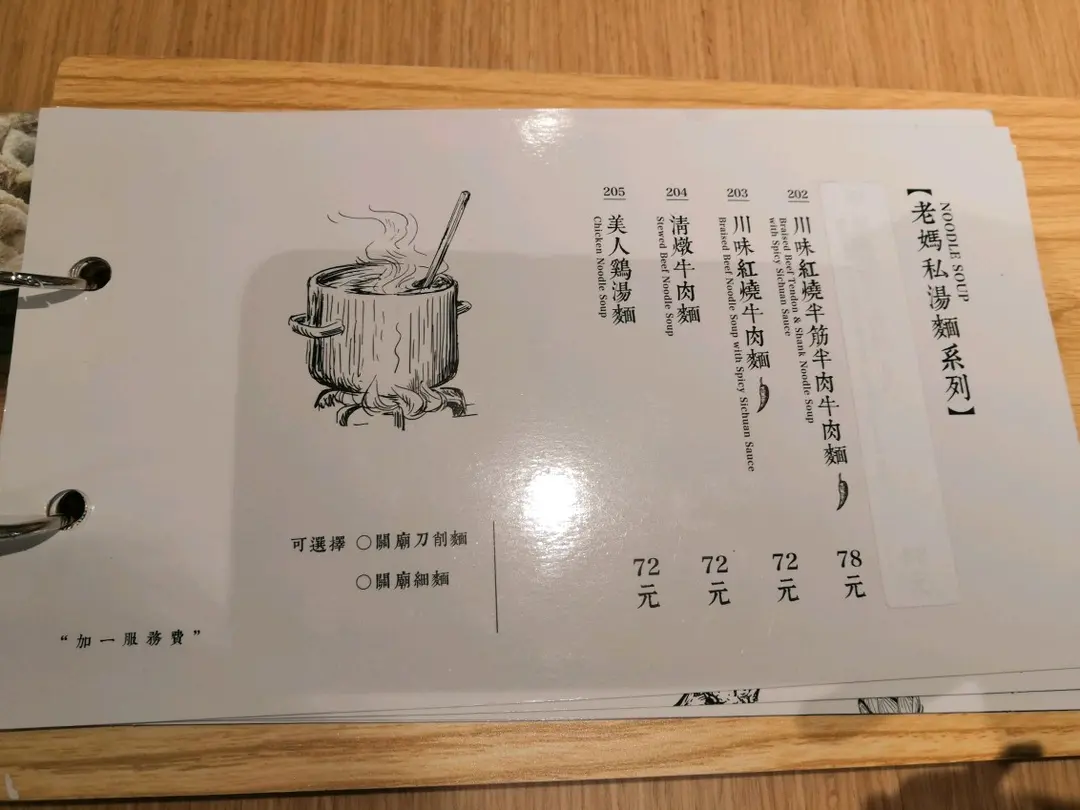 【老媽私湯麵系列】
NOODLE SOUP
202
川味紅燒半筋半肉牛肉麵
Braised Beef Tendon & Shank Noodle Soup
with Spicy Sichuan Sauce
78元
203
川味紅燒牛肉麵
Braised Beef Noodle Soup with Spicy Sichuan Sauce
72元
204
清燉牛肉麵
Stewed Beef Noodle Soup
72元
205
美人鷄湯麵
Chicken Noodle Soup
72元
可選擇 〇關廟刀削麵
〇關廟細麵
“加一服務費”